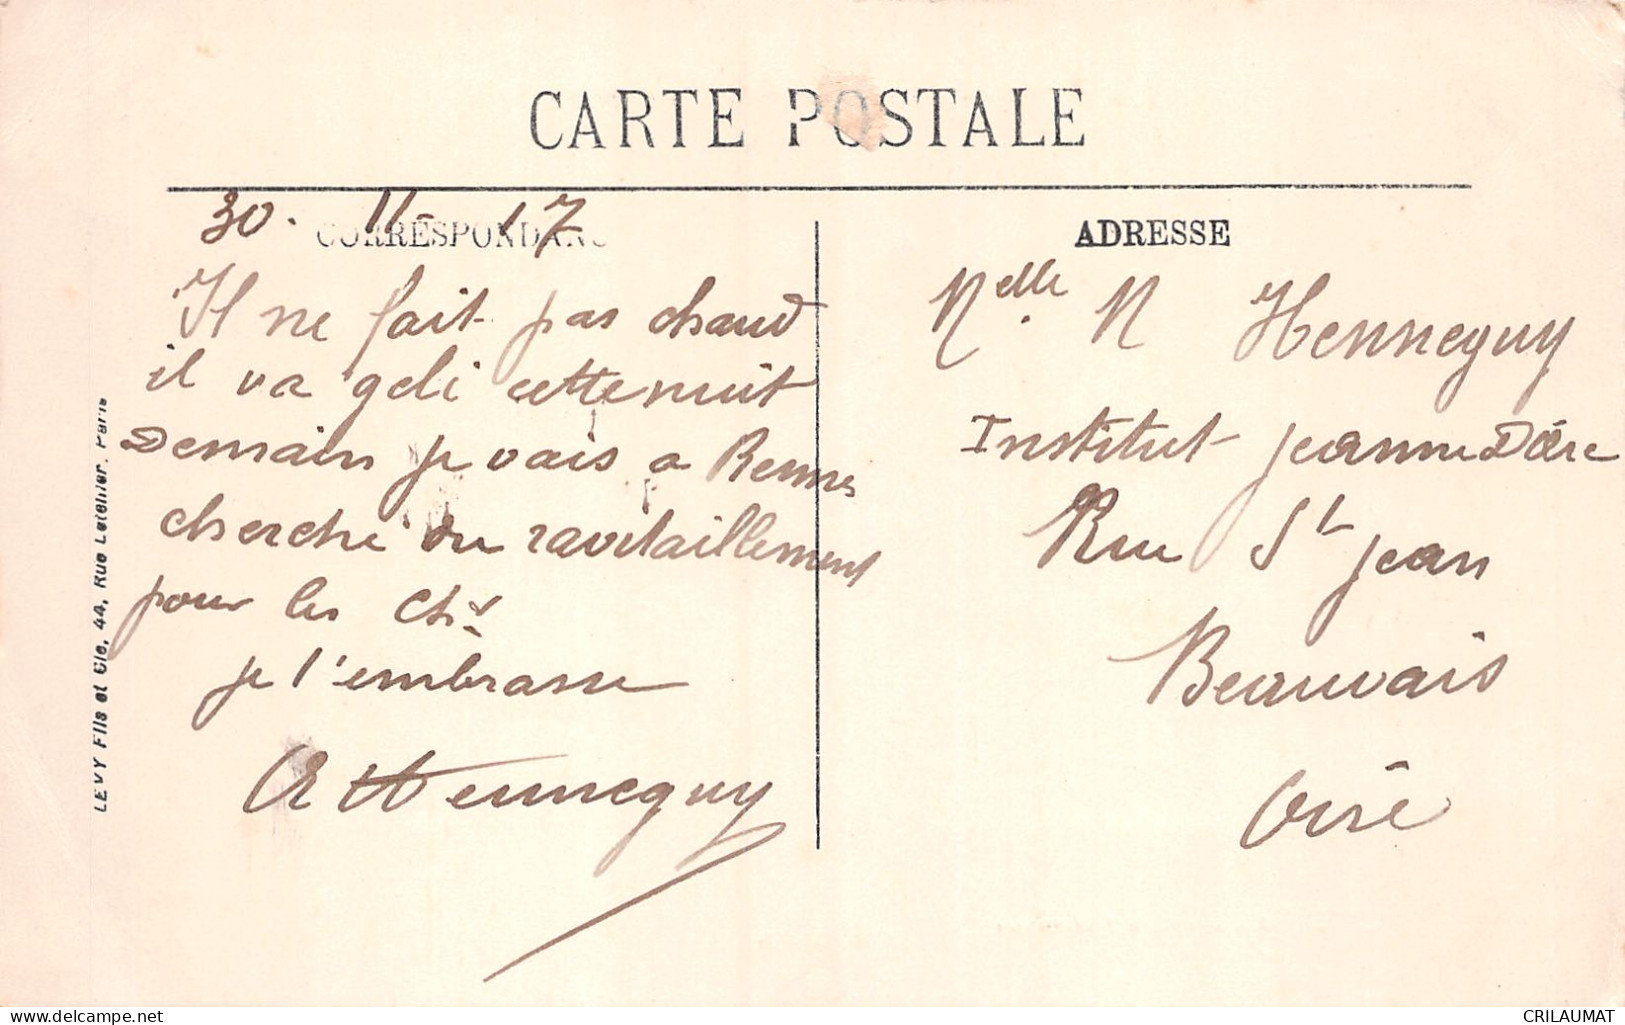 CARTE POSTALE
30. 11 - 17
CORRESPONDANC
Il ne fait pas chaud
il va geli cette nuit
Demain je vais a Rennes
cherché du ravitaillement
pour les Chx
je l'embrasse
A Henneguy
ADRESSE
Melle N Henneguy
Institut Jeanne D'arc
Rue St Jean
Beauvais
Oise
LEVY Fils et Cie, 44, Rue Letellier, Paris
www.delcampe.net
CRILAUMAT